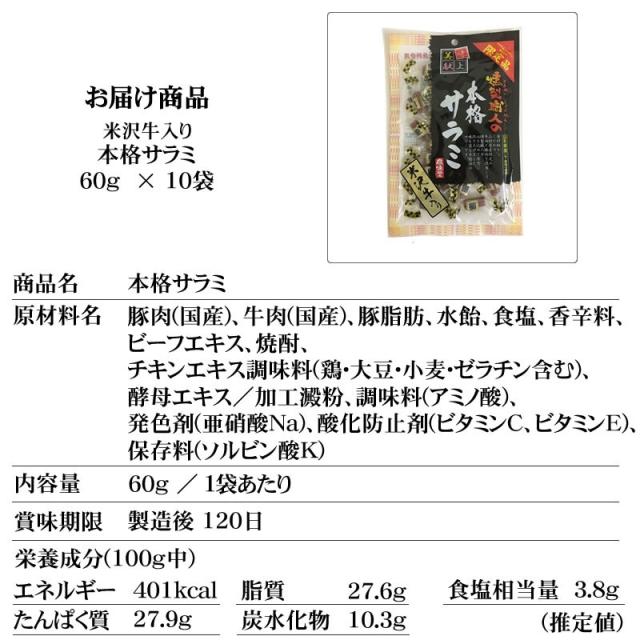 お届け商品
米沢牛入り
本格サラミ
60g × 10袋
限定品
燻製職人の
本格サラミ
米沢牛入り
商品名 本格サラミ
原材料名 豚肉(国産)、牛肉(国産)、豚脂肪、水飴、食塩、香辛料、
ビーフエキス、焼酎、
チキンエキス調味料(鶏・大豆・小麦・ゼラチン含む)、
酵母エキス／加工澱粉、調味料(アミノ酸)、
発色剤(亜硝酸Na)、酸化防止剤(ビタミンC、ビタミンE)、
保存料(ソルビン酸K)
内容量 60g ／ 1袋あたり
賞味期限 製造後 120日
栄養成分(100g中)
エネルギー 401kcal 脂質 27.6g 食塩相当量 3.8g
たんぱく質 27.9g 炭水化物 10.3g (推定値)